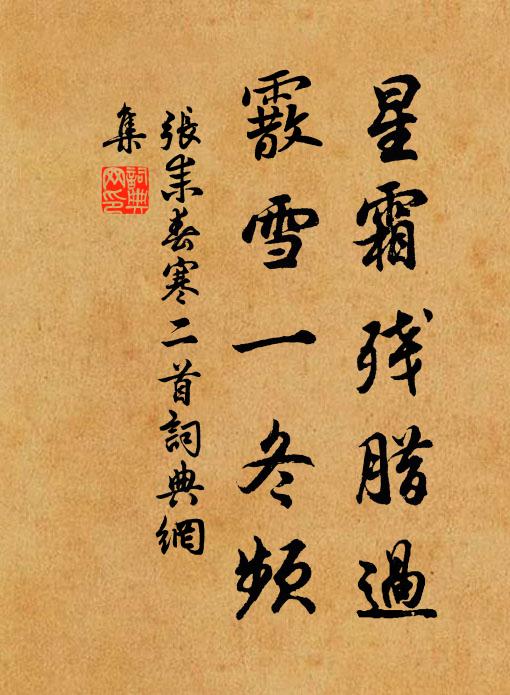 星霜残腊過
霰雪一冬頻
張耒春寒二首詞典網
集
詞典
网印